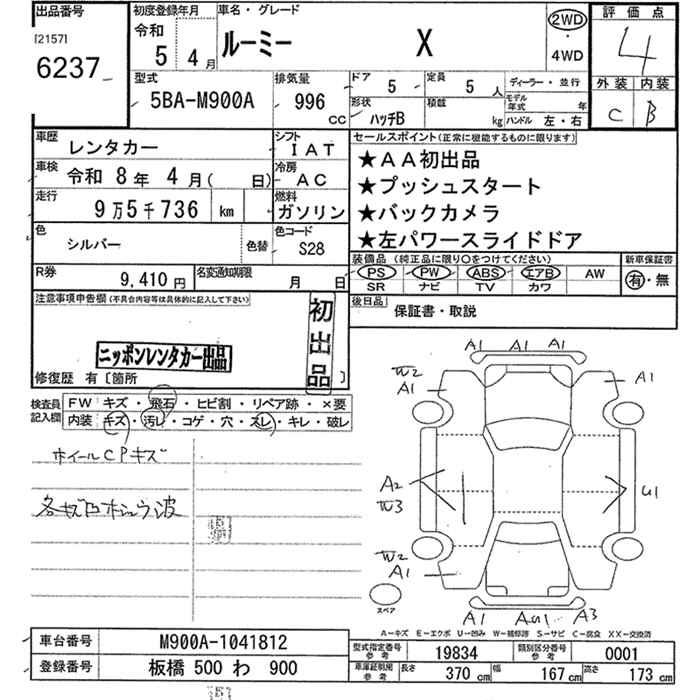 出品番号
[2157]
6237
初度登録年月
令和
5 4 月
車名・グレード
ルーミー X
2WD
・
4WD
評価点
4
外装 内装
C B
型式
5BA-M900A
排気量
996
CC
ドア
5
定員
5 人
ディーラー・並行
形状
ハッチB
積載
kg
モデル
年式
年
ハンドル 左・右
車歴
レンタカー
シフト
IAT
車検
令和 8年 4月( 日)
冷房
AC
走行
9万5千736 km
燃料
ガソリン
色
シルバー
色替
色コード
S28
R券
9,410円
名変通知期限
月 日
セールスポイント(正常に機能するものに限ります)
★AA初出品
★プッシュスタート
★バックカメラ
★左パワースライドドア
装備品(純正品に限り○をつけてください)
PS PW ABS エアB AW
SR ナビ TV カワ
新車保証書
有・無
後日品
保証書・取説
注意事項申告欄(不具合内容等は具体的に記入して下さい)
初出品
ニッポンレンタカー出品
修復歴 有〔箇所 〕
検査員
記入欄
FW キズ・飛石・ヒビ割・リペア跡・×要
内装 キズ・汚レ・コゲ・穴・スレ・キレ・破レ
ホイールCPキズ
A1 A1 A1
W2
A1
A1
A2
W3
U1
W2
A1
A1 AU1 A3
スペア
A-キズ E-エクボ U-凹み W-補修跡 S-サビ C-腐食 XX-交換済
車台番号
M900A-1041812
登録番号
板橋 500 わ 900
型式指定番号
参考
19834
類別区分番号
参考
0001
車庫証明用
参考
長さ
370 cm
幅
167 cm
高さ
173 cm